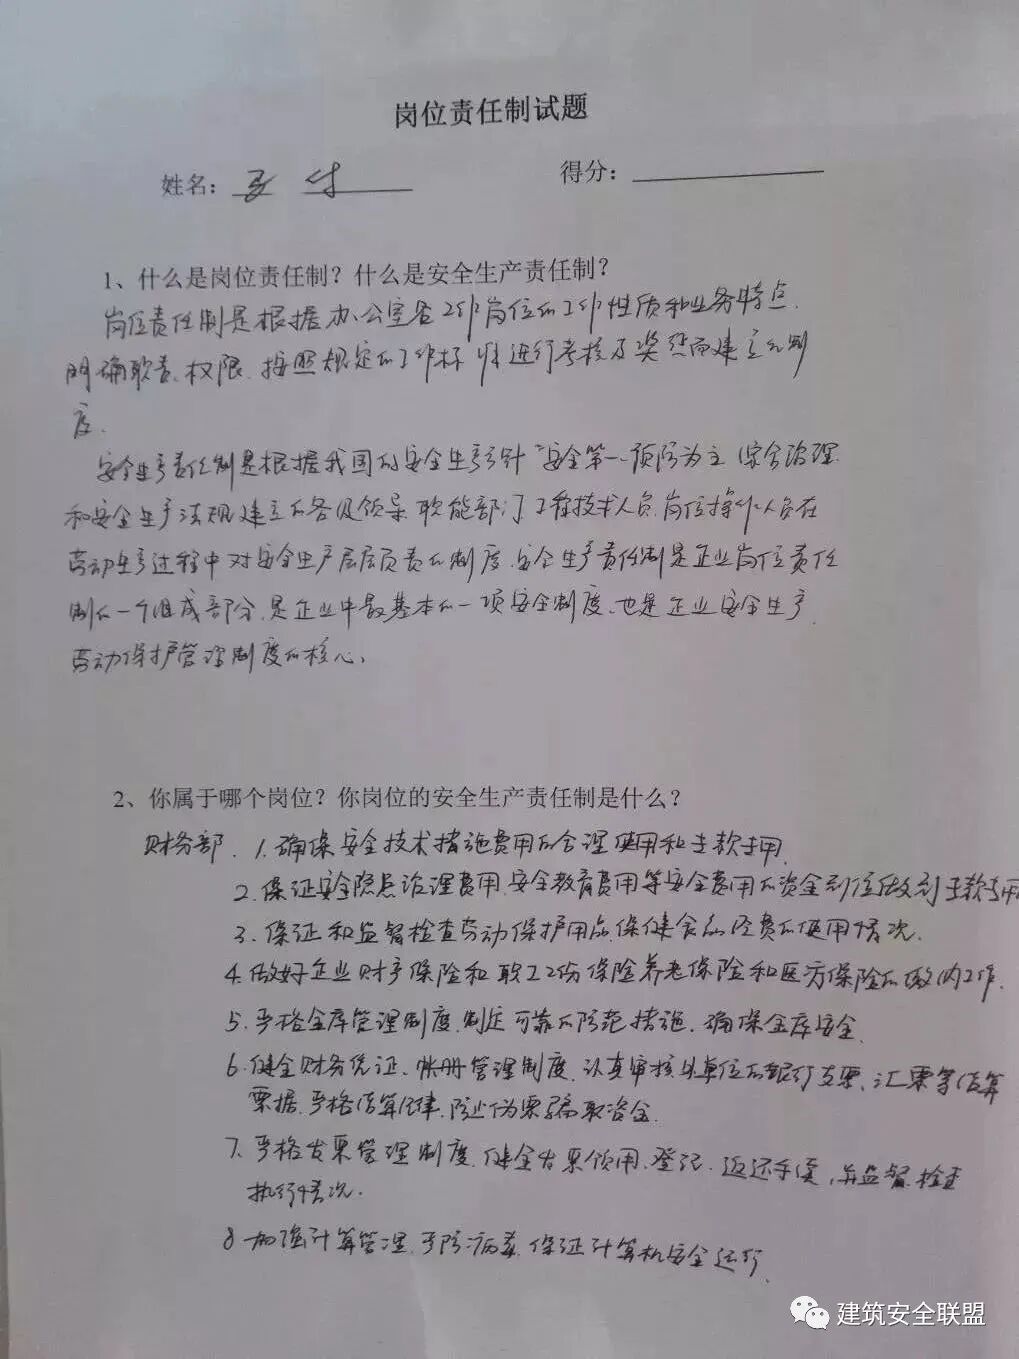 岗位责任制试题
姓名：
得分：
1、什么是岗位责任制？什么是安全生产责任制？
岗位责任制是根据办公室各工作岗位的工作性质和业务特点.
明确职责、权限、按照规定的工作标准进行考核及奖惩而建立的制
度.
安全生产责任制是根据我国的安全生产方针“安全第一、预防为主 综合治理
和安全生产法规建立的各级领导、职能部门、工程技术人员、岗位操作人员在
劳动生产过程中对安全生产层层负责的制度、安全生产责任制是企业岗位责任
制的一个组成部分、是企业中最基本的一项安全制度、也是企业安全生产、
劳动保护管理制度的核心、
2、你属于哪个岗位？你岗位的安全生产责任制是什么？
财务部、1.确保安全技术措施费用的合理使用和专款专用.
2.保证安全隐患治理费用、安全教育费用等安全费用的资金到位做到专款专用
3.保证和监督检查劳动保护用品、保健食品经费的使用情况.
4.做好企业财产保险和职工工伤保险养老保险和医疗保险的缴纳工作.
5.严格金库管理制度、制定可靠的防范措施、确保金库安全.
6.健全财务凭证、帐册管理制度、认真审核外单位的银行支票、汇票等结算
票据、严格结算纪律、防止伪票骗取资金.
7.严格发票管理制度、健全发票领用、登记、返还手续，并监督、检查
执行情况.
8 加强计算管理、予防病毒、保证计算机安全运行.
建筑安全联盟